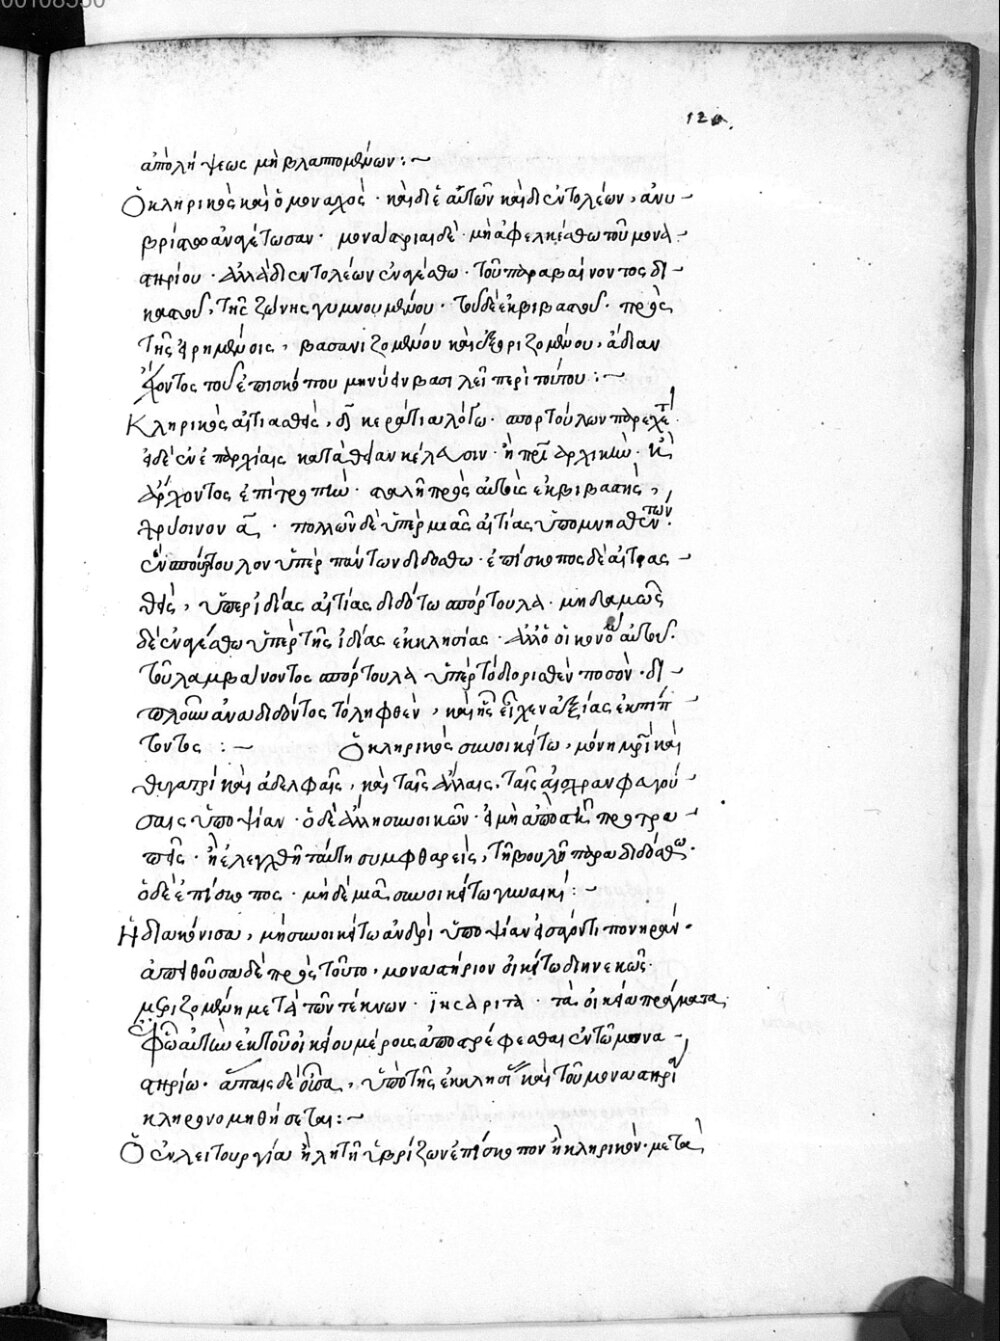 00108550
120.
ἀπολήψεως μὴ βλαπτομένων :~
Ὁ κληρικὸς καὶ ὁ μοναχὸς · καὶ δι' ἑαυτῶν καὶ δι' ἐντολέων, ἀνυ-
βρίστως ἀναγέτωσαν · μονάστριαι δὲ · μὴ ἀφελκέσθω τοῦ μονα
στηρίου · ἀλλὰ δι' ἐντολέων ἐναγέσθω · τοῦ παραβαίνοντος δι-
καστοῦ, τῆς ζώνης γυμνουμένου · τοῦ δὲ ἐκβιβαστοῦ · πρὸς
τοῖς εἰρημένοις, βασανιζομένου καὶ ἐξοριζομένου, ἄδειαν
ἔχοντος τοῦ ἐπισκόπου μηνύειν βασιλεῖ περὶ τούτου :~
Κληρικὸς αἰτιαθεὶς, σπορτούλων παρεχέτω
εἰ δὲ ἐν ἐπαρχίαις κατὰ θείαν κέλευσιν · ἢ
ἄρχοντος ἐπιτροπὴν · σταλῇ πρὸς αὐτοὺς ἐκβιβαστής,
χρύσινον α · πολλῶν δὲ ὑπὲρ μιᾶς αἰτίας ὑπομνησθέντων
ἓν σπόρτουλον ὑπὲρ πάντων διδόσθω · ἐπίσκοπος δὲ αἰτια-
θεὶς, ὑπὲρ ἰδίας αἰτίας διδότω σπόρτουλα · μηδαμῶς
δὲ ἐναγέσθω ὑπὲρ τῆς ἰδίας ἐκκλησίας · ἀλλ' ὁ οἰκονόμος αὐτοῦ ·
τοῦ λαμβάνοντος σπόρτουλα ὑπὲρ τὸ διορισθὲν ποσὸν · δι-
πλοῦν ἀναδιδόντος τὸ ληφθὲν, καὶ ἧς εἶχεν ἀξίας ἐκπίπ-
τοντος :~ Ὁ κληρικὸς συνοικείτω, μόνῃ μητρὶ καὶ
θυγατρὶ καὶ ἀδελφαῖς, καὶ ταῖς ἄλλαις, ταῖς
ὑποψίαν · ὁ δὲ ἄλλῃ συνοικῶν · εἰ μὴ ἀποστῇ προτρα-
πεὶς · ἢ ἐλεγχθῇ ταύτῃ συμφθαρεὶς, τῇ βουλῇ παραδιδόσθω ·
ὁ δὲ ἐπίσκοπος · μηδὲ μιᾷ συνοικείτω γυναικί :~
Ἡ διακόνισσα, μὴ συνοικείτω ἀνδρὶ ὑποψίαν εἰσάγοντι πονηράν ·
ἀπειθοῦσα δὲ πρὸς τοῦτο, μοναστήριον οἰκείτω διηνεκῶς ·
μεριζομένη μετὰ τῶν τέκνων · τὰ οἰκεῖα πράγματα,
ἐφ' ᾧ αὐτὴν ἐκ τοῦ οἰκείου μέρους ἀποτρέφεσθαι ἐν τῷ μονα-
στηρίῳ · ἄπαις δὲ οὖσα, ὑπὸ τῆς ἐκκλησίας καὶ τοῦ μοναστηρίου
κληρονομηθήσεται :~
Ὁ ἐν λειτουργίᾳ ἢ λιτῇ ὑβρίζων ἐπίσκοπον ἢ κληρικὸν · μετὰ